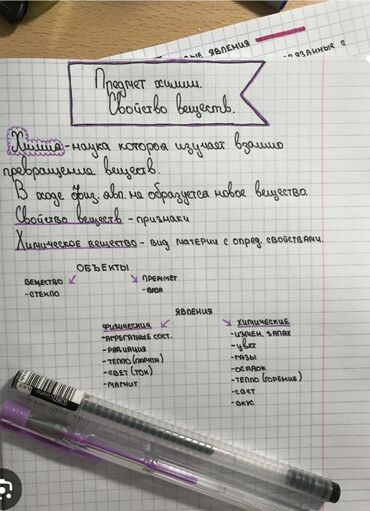 ые явления
язанные с
Предмет химии.
Свойство веществ.
Химия - наука которая изучает взаимо
превращение веществ.
В ходе физ. явл. не образуется новое вещество.
Свойство веществ - признаки
Химическое вещество - вид материи с опред. свойствами.
Объекты
вещество
предмет
- стекло
- ваза
явления
физические
химические
- агрегатные сост.
- измен. запах
- радиация
- цвет
- тепло (лампа)
- газы
- свет (ток)
- осадок
- магнит
- тепло (горение)
- свет
- вкус